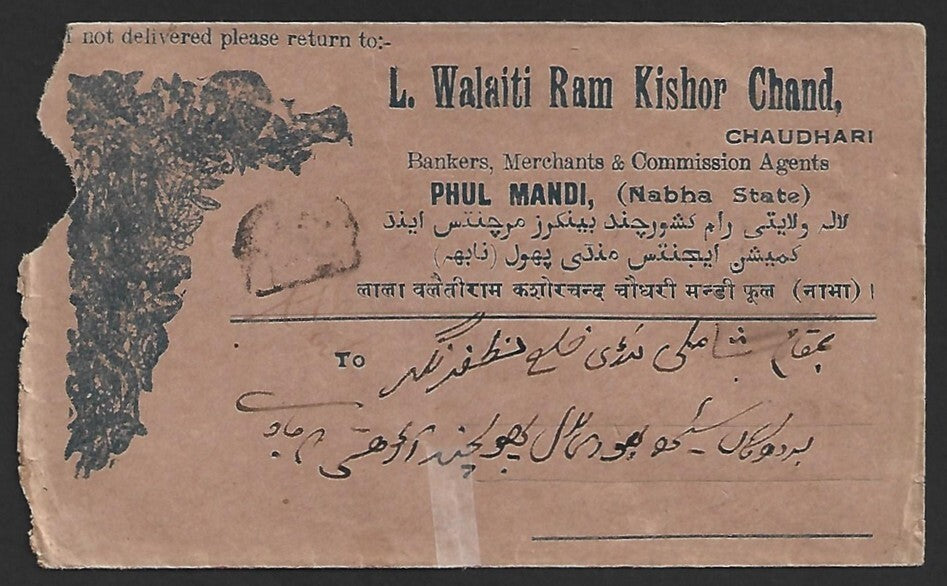 f not delivered please return to:-
L. Walaiti Ram Kishor Chand,
CHAUDHARI
Bankers, Merchants & Commission Agents
PHUL MANDI, (Nabha State)
لالہ ولایتی رام کشورچند بینکرز مرچنٹس اینڈ
کمیشن ایجنٹس منڈی پھول (نابھہ)
लाला वलैतीराम कशोरचन्द चौधरी मन्डी फूल (नाभा)।
TO بمقام شاملی منڈی ضلع مظفر نگر